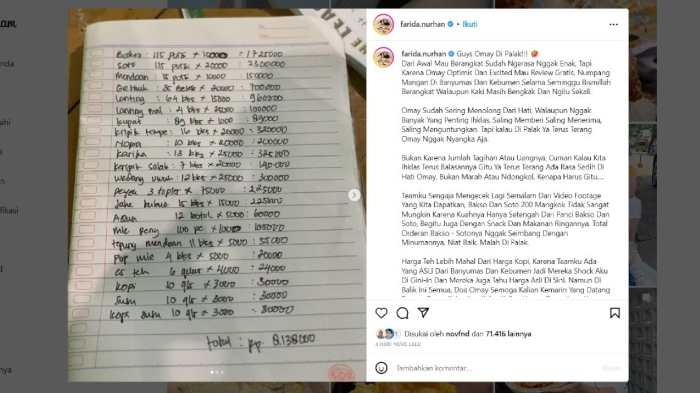 farida.nurhan • Ikuti
farida.nurhan Guys Omay Di Palak!!!
Dari Awal Mau Berangkat Sudah Ngerasa Nggak Enak, Tapi
Karena Omay Optimis Dan Excited Mau Review Gratis, Numpang
Mangan Di Banyumas Dan Kebumen Selama Seminggu Bismillah
Berangkat Walaupun Kaki Masih Bengkak Dan Ngilu Sekali.
Omay Sudah Sering Menolong Dari Hati, Walaupun Nggak
Banyak Yang Penting Ihklas, Saling Memberi Saling Menerima,
Saling Menguntungkan. Tapi kalau Di Palak Ya Terus Terang
Omay Nggak Nyangka Aja.
Bukan Karena Jumlah Tagihan Atau Uangnya, Cuman Kalau Kita
Ihklas Terus Balasannya Gitu Ya Terus Terang Ada Rasa Sedih Di
Hati Omay, Bukan Marah Atau Ndongkol, Kenapa Harus Gitu...
Teamku Sengaja Mengecek Lagi Semalam Dari Video Footage
Yang Kita Dapatkan, Bakso Dan Soto 200 Mangkok Tidak Sangat
Mungkin Karena Kuahnya Hanya Setengah Dari Panci Bakso Dan
Soto, Begitu Juga Dengan Snack Dan Makanan Ringannya. Total
Orderan Bakso - Sotonya Nggak Seimbang Dengan
Minumannya, Niat Baik, Malah Di Palak.
Harga Teh Lebih Mahal Dari Harga Kopi, Karena Teamku Ada
Yang ASLI Dari Banyumas Dan Kebumen Jadi Mereka Shock Aku
Di Gini-in Dan Mereka Juga Tahu Harga Asli Di Sini, Namun Di
Balik Ini Semua, Doa Omay Semoga Kalian Kemarin Yang Datang
Disukai oleh novfnd dan 71.416 lainnya
4 HARI YANG LALU
Tambahkan komentar...
Bakso : 115 porsi × 15000 = 1725000
Soto : 115 porsi × 20000 = 2300000
Mendoan : 15 porsi × 10000 150000
lanting : 64 bks × 15000 = 960000
kupat : 89 bks × 1000 : 89000
kripik tempe : 16 bks × 20000 : 320000
Nopia : 10 bks × 20000 : 200000
Karika : 13 bks × 25000 : 325000
keripik salak : 7 bks × 20000 : 140000
wedang uwuh : 12 bks × 25000 : 300000
peyek 3 toples × 75000 : 225000
Jahe bubuk 15 bks × 15000 : 225000
Aqua 12 botol × 5000 : 60000
mie 100 pc × 1000
tepung mendoan 11 bks × 5000 : 55000
Pop mie 4 bks × 5000 : 20000
es teh 6 gelas × 4000 : 24000
kopi 10 gls × 3000 : 30000
susu 10 gls × 3000 : 30000
kopi susu 10 gls × 3000 : 30000
total : Rp 8.138000